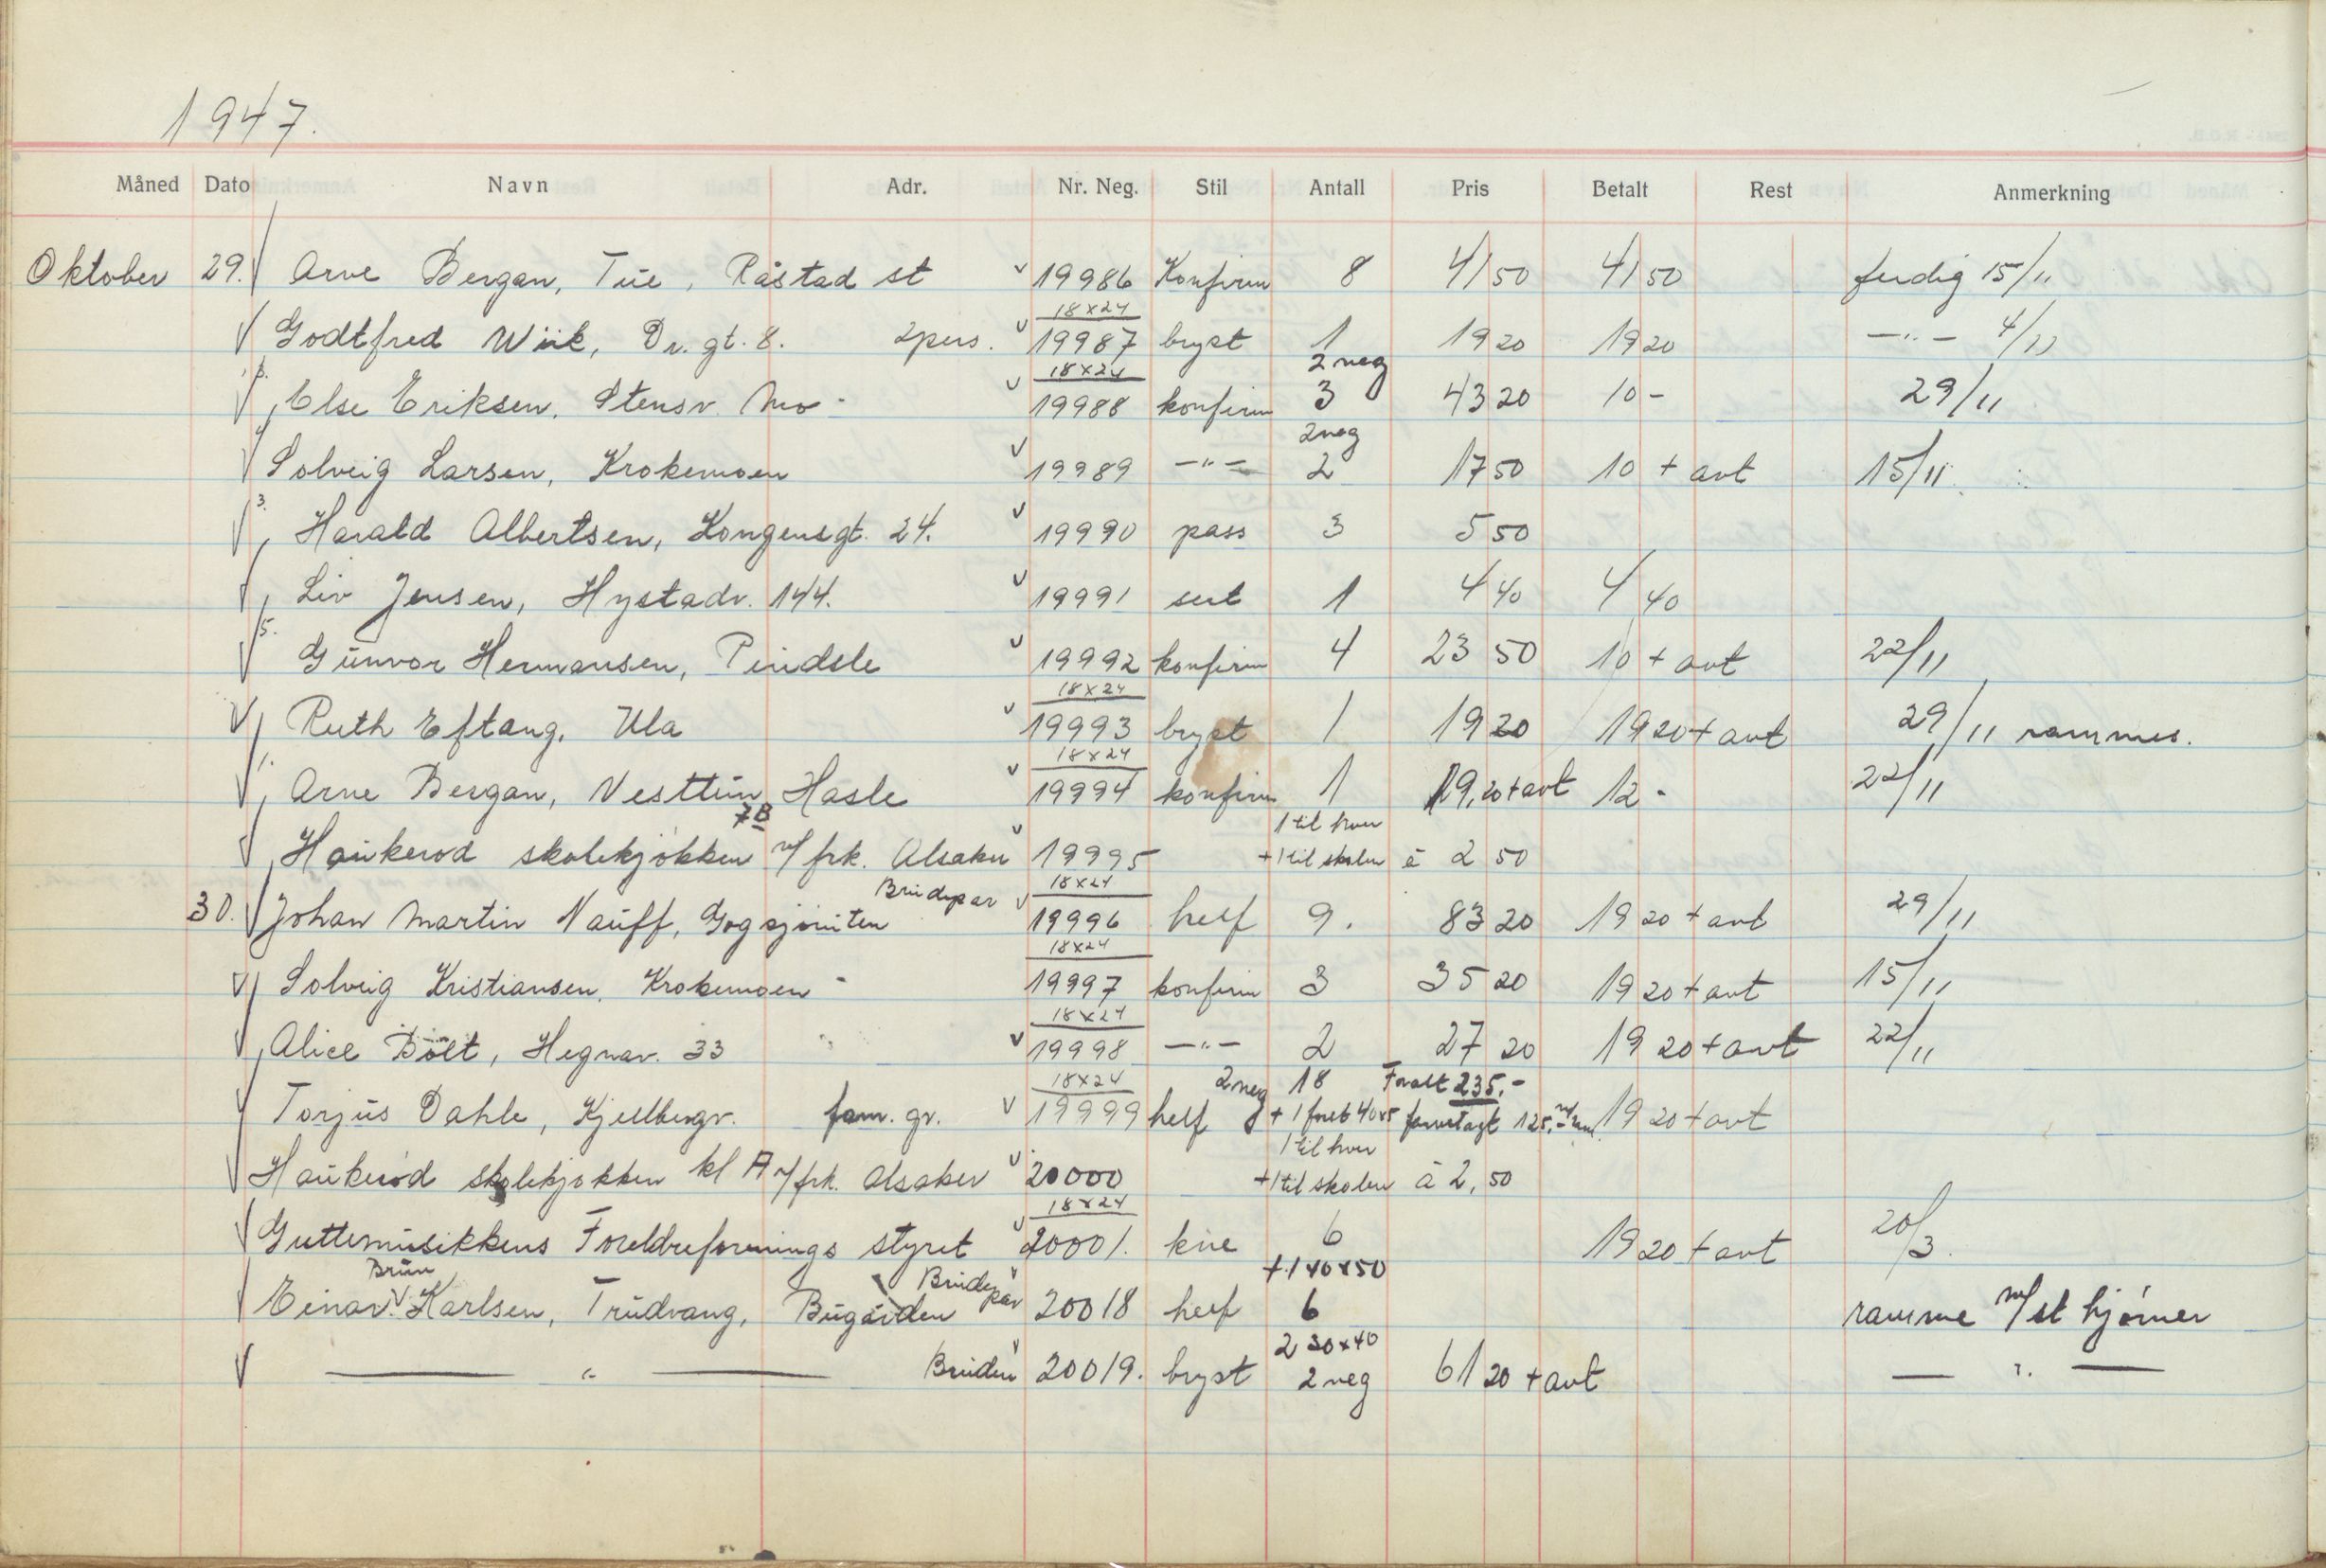 1947.
Måned Dato Navn Adr. Nr. Neg. Stil Antall Pris Betalt Rest Anmerkning
Oktober 29. Arve Bergan, Tue, Råstad st 19986 Konfirm 8 41 50 41 50 ferdig 15/11
18x24
Godtfred Wiik, Dr. gt. 8. 2pers. 19987 bryst 1 19 20 19 20 —"— 4/11
18x24 2 neg
Else Eriksen, Stensv. Mo - 19988 konfirm 3 43 20 10 - 29/11
2 neg
Solveig Larsen, Krokemoen 19989 —"— 2 17 50 10 + avt 15/11
3.
Harald Albertsen, Kongensgt. 24. 19990 pass 3 5 50
Liv Jensen, Hystadv. 144. 19991 sert 1 4 40 4 40
5.
Gunvor Hermansen, Pindsle 19992 konfirm 4 23 50 10 + avt 22/11
18x24
Ruth Eftang, Ula 19993 bryst 1 19 20 19 20 + avt 29/11 rammes.
18x24
Arne Bergan, Vesttun Hasle 19994 konfirm 1 19,20 + avt 12 - 22/11
7B 1 til hver
Haukerød skolekjøkken v/ frk. Alsaker 19995 + 1 til skolen á 2 50
Brudepar 18x24
30. Johan Martin Nauff, Gogsjøruten 19996 helf 9. 83 20 19 20 + avt 29/11
18x24
Solveig Kristiansen, Krokemoen - 19997 konfirm 3 35 20 19 20 + avt 15/11
18x24
Alice Bølt, Hegnav. 33 19998 —"— 2 27 20 19 20 + avt 22/11
18x24 2 neg 18 Foralt 235.-
Torjus Dahle, Kjellbergv. fam. gr. 19999 helf + 1 forst 40x5 forurtagt 125.- 19 20 + avt
1 til hver
Haukerød skolekjøkken kl A v/ frk. Alsaker 20000 + 1 til skolen á 2,50
18x24
Guttemusikkens Foreldreforenings styret 20001. kne 6 19 20 + avt 20/3.
Brun Brudepar + 1 40x50
Einar Karlsen, Trudvang, Bugården 20018 helf 6 ramme m/ st hjørner
2 30x40
— " — Bruden 20019. bryst 2 neg 61 20 + avt — " —